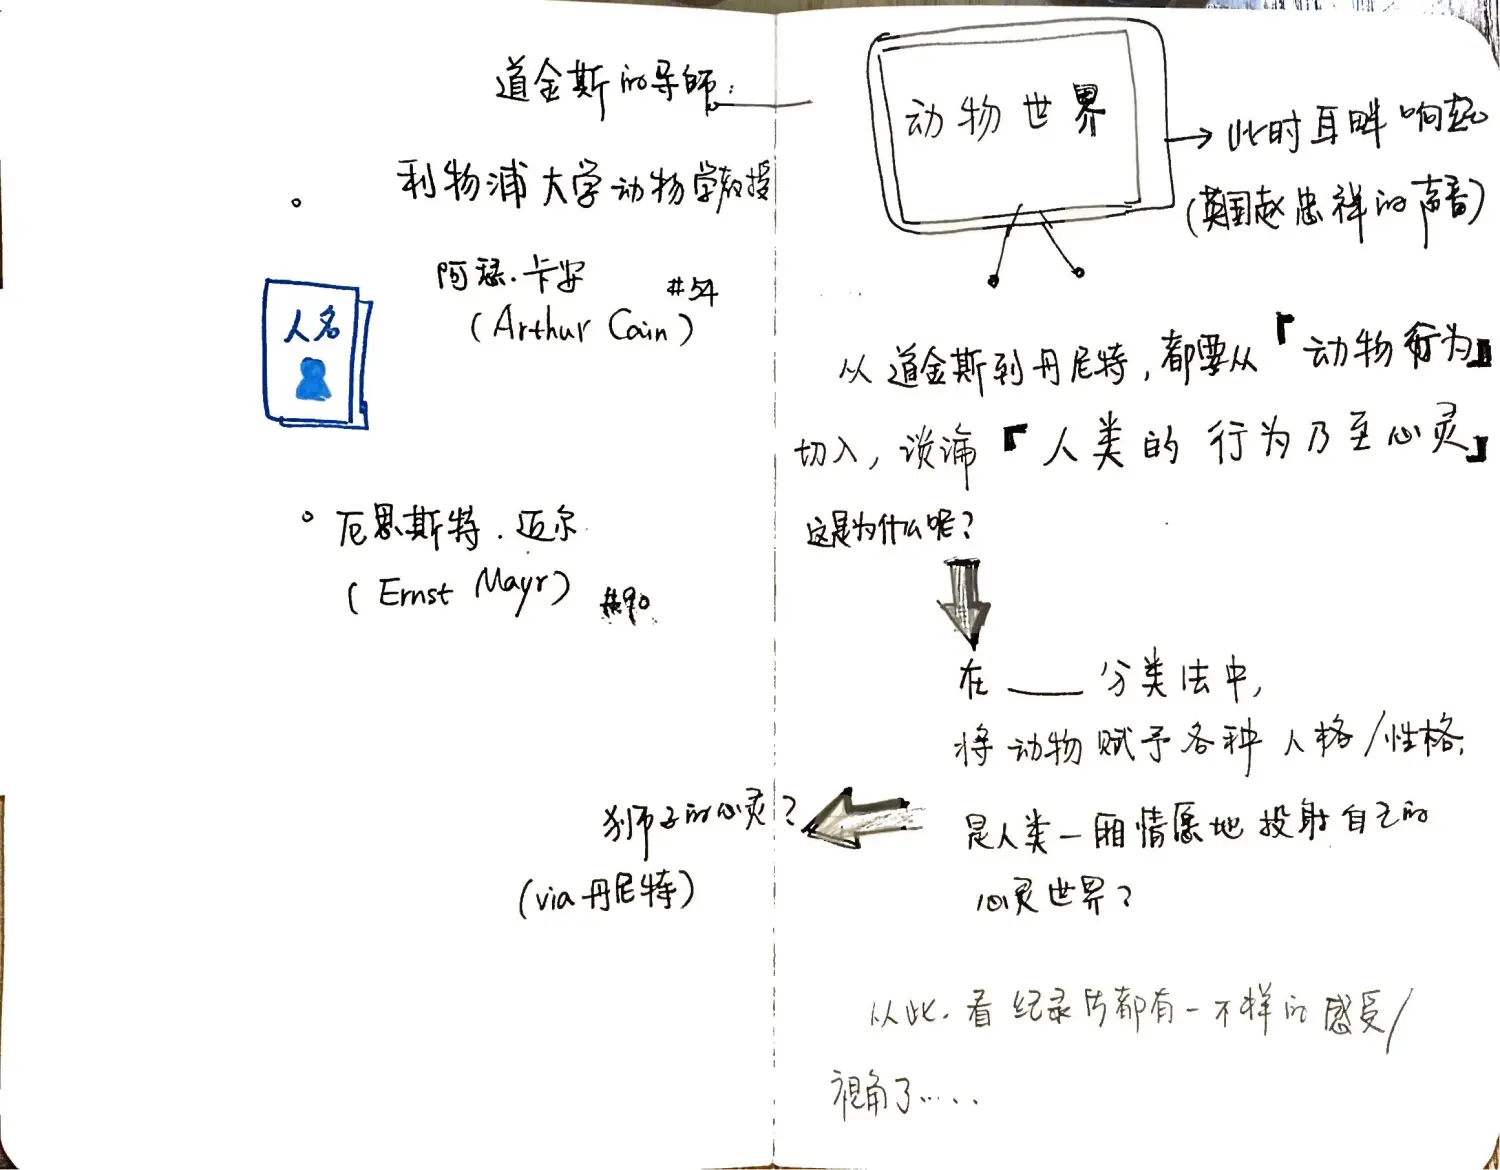 道金斯的导师:
利物浦大学动物学教授
阿瑟.卡安 #54
(Arthur Cain)
人名
厄恩斯特.迈尔
(Ernst Mayr) #90
狮子的心灵?
(via 丹尼特)
动物世界
此时耳畔响起
(英国赵忠祥的声音)
从道金斯到丹尼特,都要从「动物行为」
切入,谈论「人类的行为乃至心灵」
这是为什么呢?
在____分类法中,
将动物赋予各种人格/性格,
是人类一厢情愿地投射自己的
心灵世界?
从此.看纪录片都有一不样的感受/
视角了.....